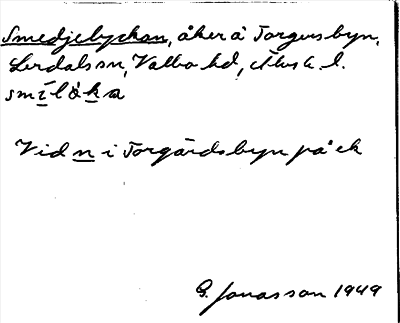 Smedjelyckan, åker å Torgersbyn,
Lerdals sn, Valbo hd, Älvsb. l.
smílø̀ka
Vid n i Torgärdsbyn på ek
G. Jonasson 1949